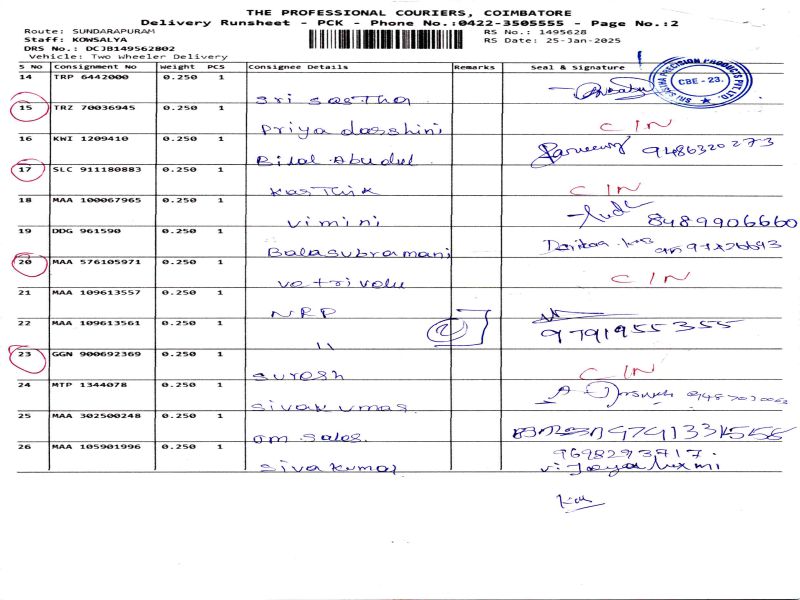 THE PROFESSIONAL COURIERS, COIMBATORE
Delivery Runsheet - PCK - Phone No.:0422-3505555 - Page No.:2
Route: SUNDARAPURAM
RS No.: 1495628
Staff: KOWSALYA
RS Date: 25-Jan-2025
DRS No.: DCJB149562802
Vehicle: Two Wheeler Delivery
S No Consignment No Weight PCS Consignee Details Remarks Seal & Signature
14 TRP 6442000 0.250 1
Sri Sastha
SRI SASTHA PRECISION PRODUCTS PVT LTD. CBE - 23.
15 TRZ 70036945 0.250 1
Priya dasshini CIN
16 KWI 1209410 0.250 1
Bilal Abudul 9486320273
17 SLC 911180883 0.250 1
Kasthik CIN
18 MAA 100067965 0.250 1
Vimini 8489906660
19 DDG 961590 0.250 1
Balasubramani
20 MAA 576105971 0.250 1
Vetrivelu CIN
21 MAA 109613557 0.250 1
NRP
22 MAA 109613561 0.250 1
(2) 9791955355
"
23 GGN 900692369 0.250 1
Suresh CIN
24 MTP 1344078 0.250 1
Sivakumas
25 MAA 302500248 0.250 1
om sales.
26 MAA 105901996 0.250 1
Sivakumar